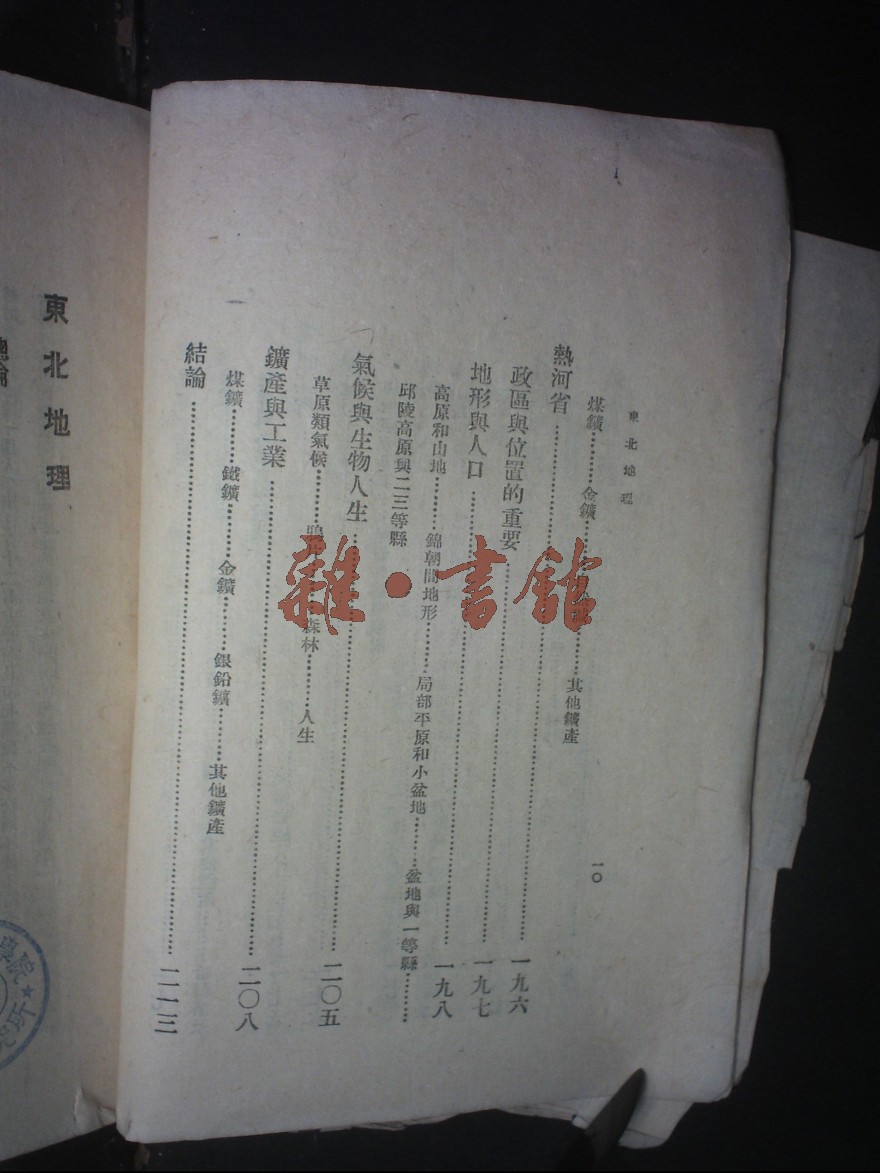 東北地理
一〇
煤鑛………金鑛………其他鑛產
熱河省………一九六
政區與位置的重要………一九七
地形與人口………一九八
高原和山地………錦朝間地形………局部平原和小盆地………盆地與一等縣………
邱陵高原與二三等縣
氣候與生物人生………二〇五
草原類氣候………森林………人生
鑛產與工業………二〇八
煤鑛………鐵鑛………金鑛………銀鉛鑛………其他鑛產
結論………二一三
東北地理
總論
雜·書館
學院
究所